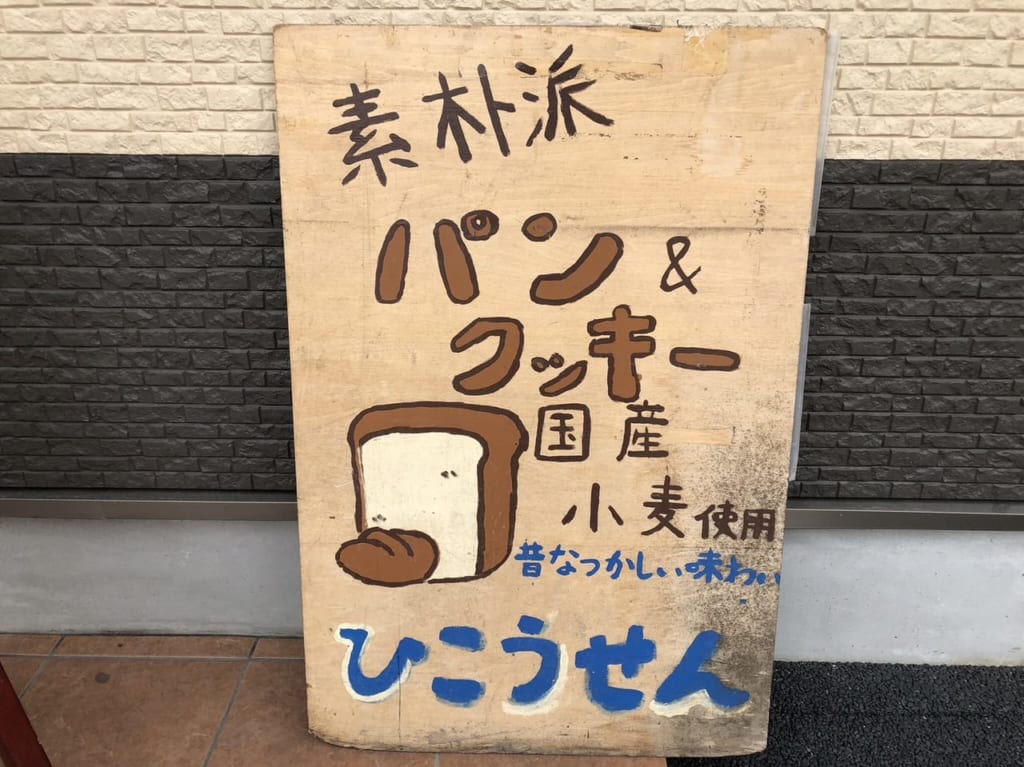 素朴派
パン&
クッキー
国産
小麦使用
昔なつかしい味わい
ひこうせん